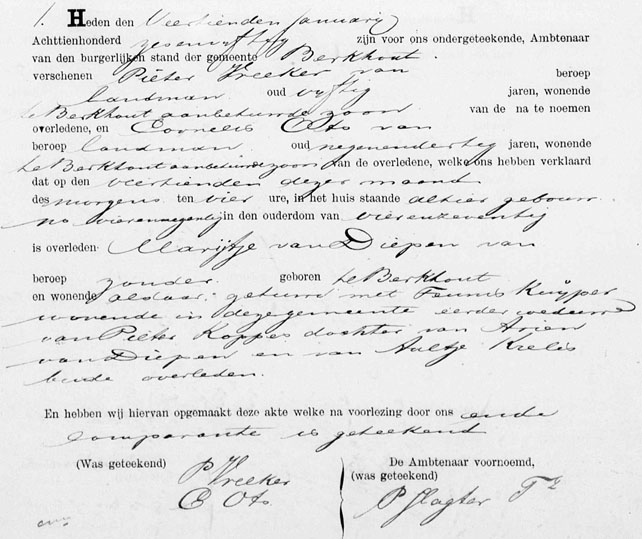 1. Heden den Veertienden January
Achttienhonderd zesenvyftig zijn voor ons ondergeteekende, Ambtenaar
van den burgerlijken stand der gemeente Berkhout.
verschenen Pieter Vreeker van beroep
landman oud vyftig jaren, wonende
te Berkhout aanbehuwde zoon van de na te noemen
overledene, en Cornelis Ots van
beroep landman oud negenendertig jaren, wonende
te Berkhout aanbehuwde zoon van de overledene, welke ons hebben verklaard
dat op den veertienden dezer maand
des morgens ten vier ure, in het huis staande alhier gebuurt
no vierennegentig in den ouderdom van vierenzeventig
is overleden Marijtje van Diepen van
beroep zonder geboren te Berkhout
en wonende aldaar, gehuwd met Teunis Kuyper
wonende in deze gemeente eerder weduwe
van Pieter Koppes dochter van Arien
van Diepen en van Aaltje Krelis
beide overleden.
En hebben wij hiervan opgemaakt deze akte welke na voorlezing door ons ende
comparante is geteekend
(Was geteekend) P Vreeker
C Ots
De Ambtenaar voornoemd,
(was geteekend)
P Slagter Tz